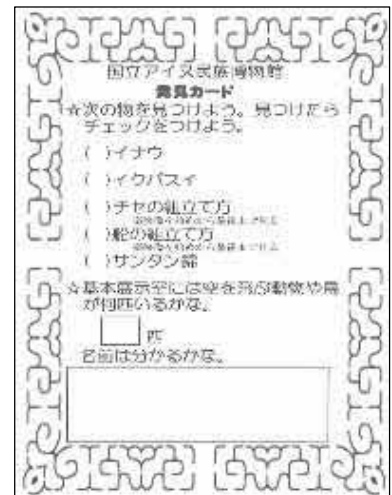 国立アイヌ民族博物館
発見カード
☆次の物を見つけよう。見つけたら
チェックをつけよう。
( )イナウ
( )イクパスイ
( )チセの組立て方
( )船の組立て方
( )サンタン錦
☆基本展示室には空を飛ぶ動物や鳥
が何匹いるかな。
匹
名前は分かるかな。